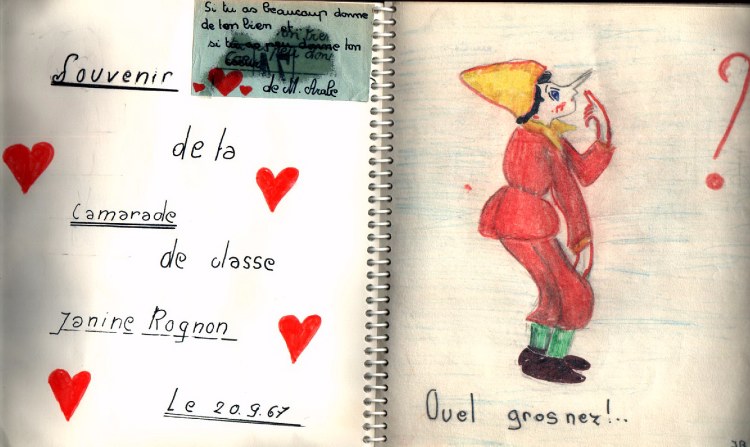 Si tu as beaucoup donne
de ton bien et
si tu as peu donne ton
de M. Arabe
Souvenir
de ta
Camarade
de classe
Janine Rognon
Le 20.9.67
Quel gros nez!..
?